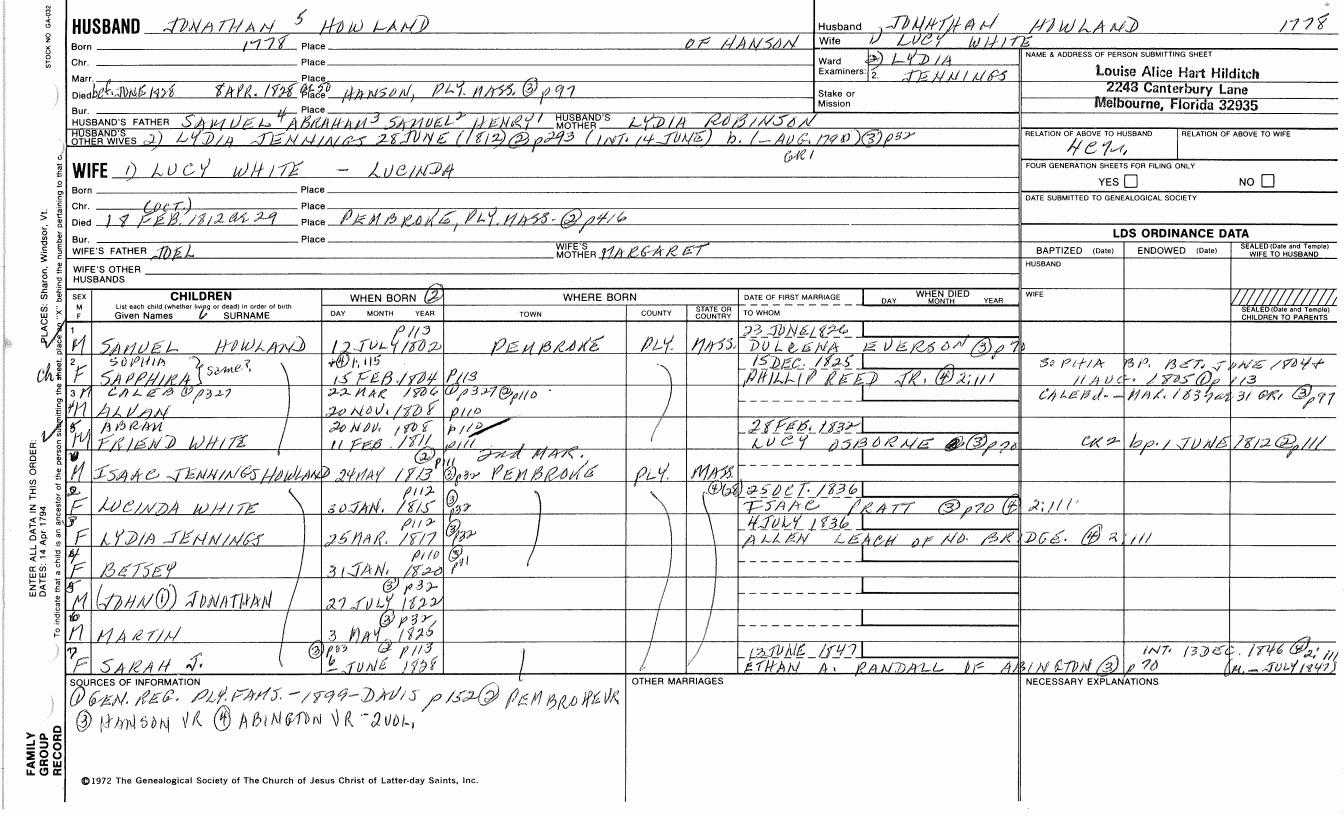 STOCK NO. GA-032
HUSBAND JONATHAN 5 HOWLAND
Born 1778 Place OF HANSON
Chr. Place
Marr. Place
Died bef. JUNE 1828 8 APR. 1828 ae 50 Place HANSON, PLY. MASS. ③ p97
Bur. Place
HUSBAND'S FATHER SAMUEL 4 ABRAHAM 3 SAMUEL 2 HENRY 1 HUSBAND'S MOTHER LYDIA ROBINSON
HUSBAND'S OTHER WIVES 2) LYDIA JENNINGS 28 JUNE (1812) ② p293 (INT. 14 JUNE) b. (- AUG. 1790) ③ p32
GR1
WIFE 1) LUCY WHITE - LUCINDA
Born Place
Chr. (OCT.) Place
Died 18 FEB. 1812 ae 29 Place PEMBROKE, PLY. MASS. ② p416
Bur. Place
WIFE'S FATHER JOEL WIFE'S MOTHER MARGARET
WIFE'S OTHER HUSBANDS
Husband JONATHAN HOWLAND 1778
Wife 1) LUCY WHITE
Ward 2) LYDIA
Examiners: 2. JENNINGS
Stake or Mission
NAME & ADDRESS OF PERSON SUBMITTING SHEET
Louise Alice Hart Hilditch
2243 Canterbury Lane
Melbourne, Florida 32935
RELATION OF ABOVE TO HUSBAND RELATION OF ABOVE TO WIFE
FOUR GENERATION SHEETS FOR FILING ONLY
YES NO
DATE SUBMITTED TO GENEALOGICAL SOCIETY
LDS ORDINANCE DATA
BAPTIZED (Date) ENDOWED (Date) SEALED (Date and Temple) WIFE TO HUSBAND
HUSBAND
WIFE
SEALED (Date and Temple) CHILDREN TO PARENTS
SEX M F
CHILDREN
List each child (whether living or dead) in order of birth
Given Names 6 SURNAME
WHEN BORN ②
DAY MONTH YEAR
WHERE BORN
TOWN COUNTY STATE OR COUNTRY
DATE OF FIRST MARRIAGE
TO WHOM
WHEN DIED
DAY MONTH YEAR
1 p113 23 JUNE 1826
M SAMUEL HOWLAND 12 JULY 1802 PEMBROKE PLY. MASS. DULCENA EVERSON ③ p70
2 SOPHIA same? ④ 1:115 15 DEC. 1825 SOPHIA BP. BET. JUNE 1804 +
F SAPPHIRA 15 FEB. 1804 p113 PHILLIP REED JR. ④ 2:111 11 AUG. 1805 ① p113
3 M CALEB ① p327 22 MAR 1806 ① p327 ② p110 CALEB d. - MAR. 1837 ae 31 GR1. ③ p97
4 M ALVAN 20 NOV. 1808 p110
5 ABRAM 20 NOV. 1808 p110 28 FEB. 1832
M FRIEND WHITE 11 FEB. 1811 p111 LUCY OSBORNE ③ p70 CR2 bp. 1 JUNE 1812 ② p111
② p111 2nd MAR.
M ISAAC JENNINGS HOWLAND 24 MAY 1813 ③ p32 PEMBROKE PLY. MASS
p112 ③ p32 25 OCT. 1836
F LUCINDA WHITE 30 JAN. 1815 ISAAC PRATT ③ p70 ④ 2:111
p112 ③ p32 4 JULY 1836
F LYDIA JENNINGS 25 MAR. 1817 ALLEN LEACH OF NO. BRIDGE. ④ 2:111
p110 ③
F BETSEY 31 JAN. 1820
③ p32
M (JOHN ①) JONATHAN 27 JULY 1822
③ p32
M MARTIN 3 MAY 1825
② p113 13 JUNE 1847 INT. 13 DEC. 1846
F SARAH J. JUNE 1828 ETHAN A. RANDALL OF ABINGTON ③ p70 (m. - JULY 1847)
SOURCES OF INFORMATION
① GEN. REG. PLY. FAMS. - 1899 - DAVIS p152 ② PEMBROKE VR
③ HANSON VR ④ ABINGTON VR - 2 VOL.
OTHER MARRIAGES
NECESSARY EXPLANATIONS
©1972 The Genealogical Society of The Church of Jesus Christ of Latter-day Saints, Inc.
FAMILY GROUP RECORD
ENTER ALL DATA IN THIS ORDER:
DATES: 14 Apr 1794
PLACES: Sharon, Windsor, Vt.
To indicate that a child is an ancestor of the person submitting the sheet, place an "X" behind the number pertaining to that c